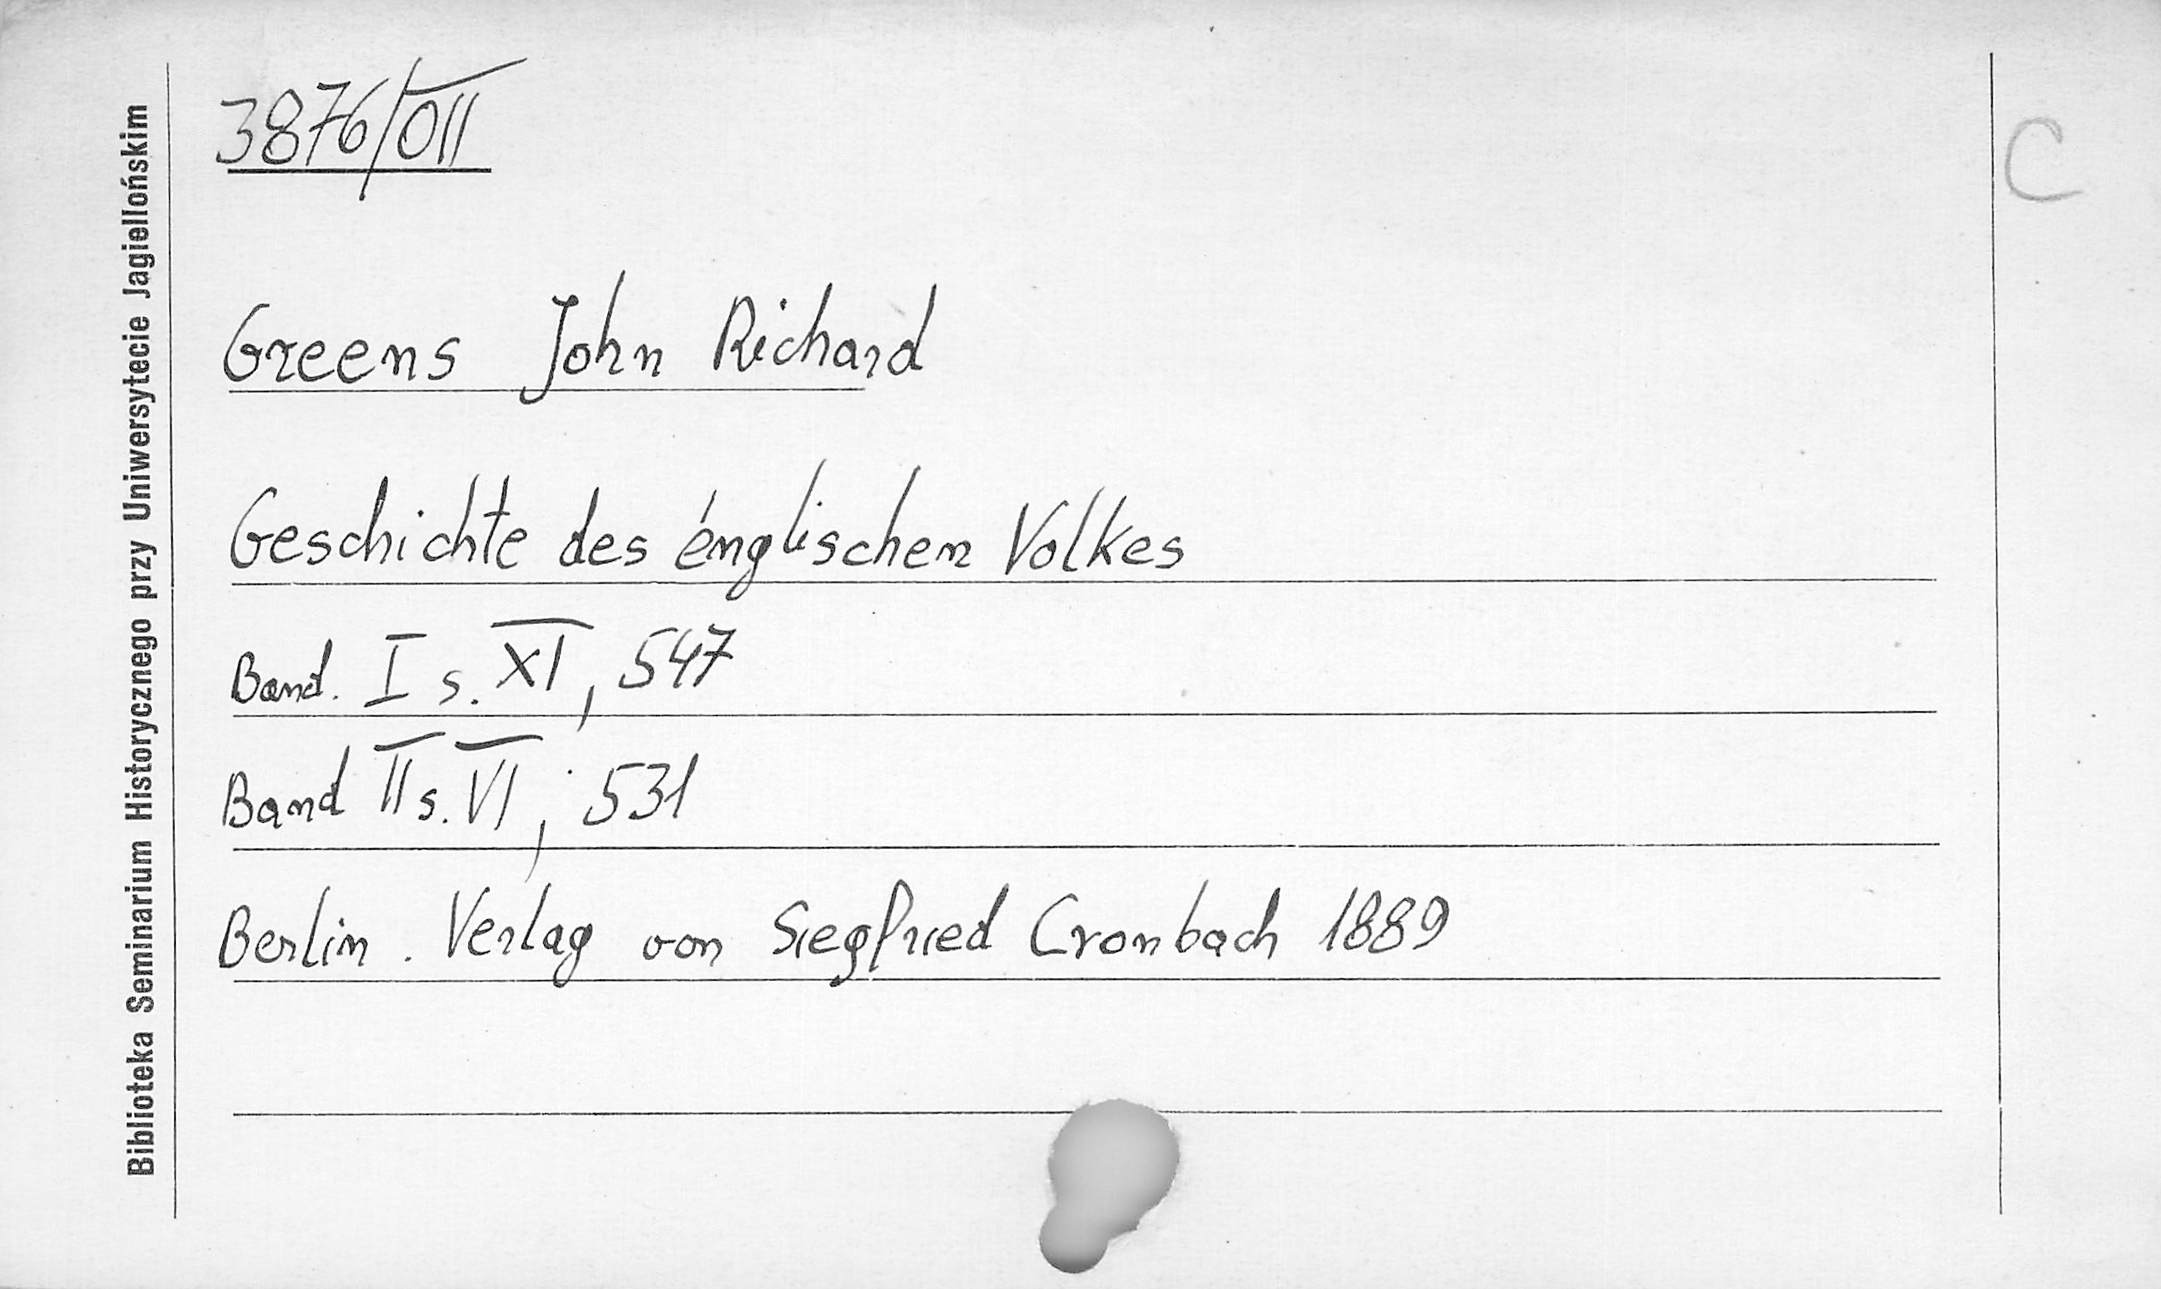 3876/OII
C
Greens John Richard
Geschichte des énglischen Volkes
Band. I s. XI, 547
Band II s. VI, 531
Berlin. Verlag von Siegfried Cronbach 1889
Biblioteka Seminarium Historycznego przy Uniwersytecie Jagiellońskim